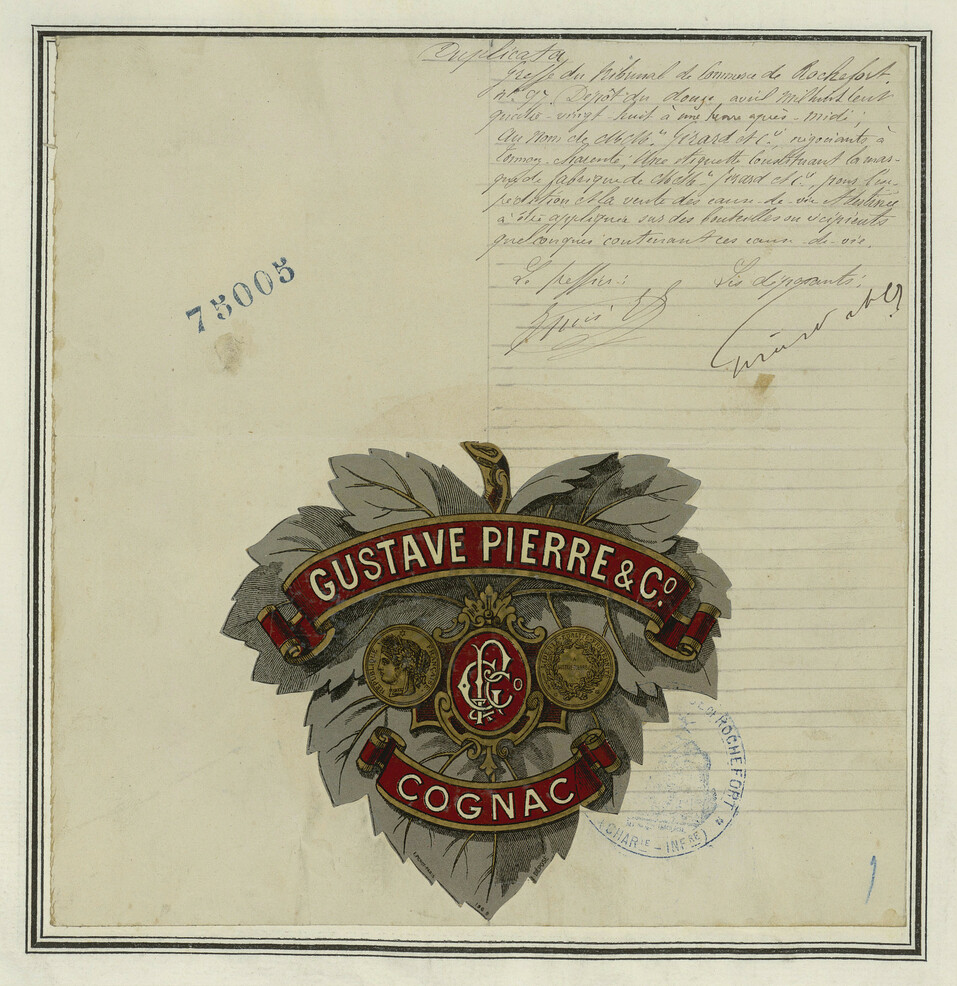 Duplicata
Greffe du tribunal de Commerce de Rochefort.
n° 97. Dépôt du douze avril mil huit cent
quatre-vingt-huit à une heure après-midi;
au nom de MM. Girard et Cie, négociants à
Tonnay-Charente. Une étiquette constituant la mar-
que de fabrique de MM. Girard et Cie, pour l'ex-
pédition et la vente des eaux-de-vie et destinée
à être appliquée sur des bouteilles ou récipients
quelconques contenant ces eaux-de-vie.
Le greffier: Les déposants:
75005
GUSTAVE PIERRE & Cº.
RÉPUBLIQUE FRANÇAISE
COGNAC
DE ROCHEFORT
(CHARIE - INFRE)
DÉPOSÉ